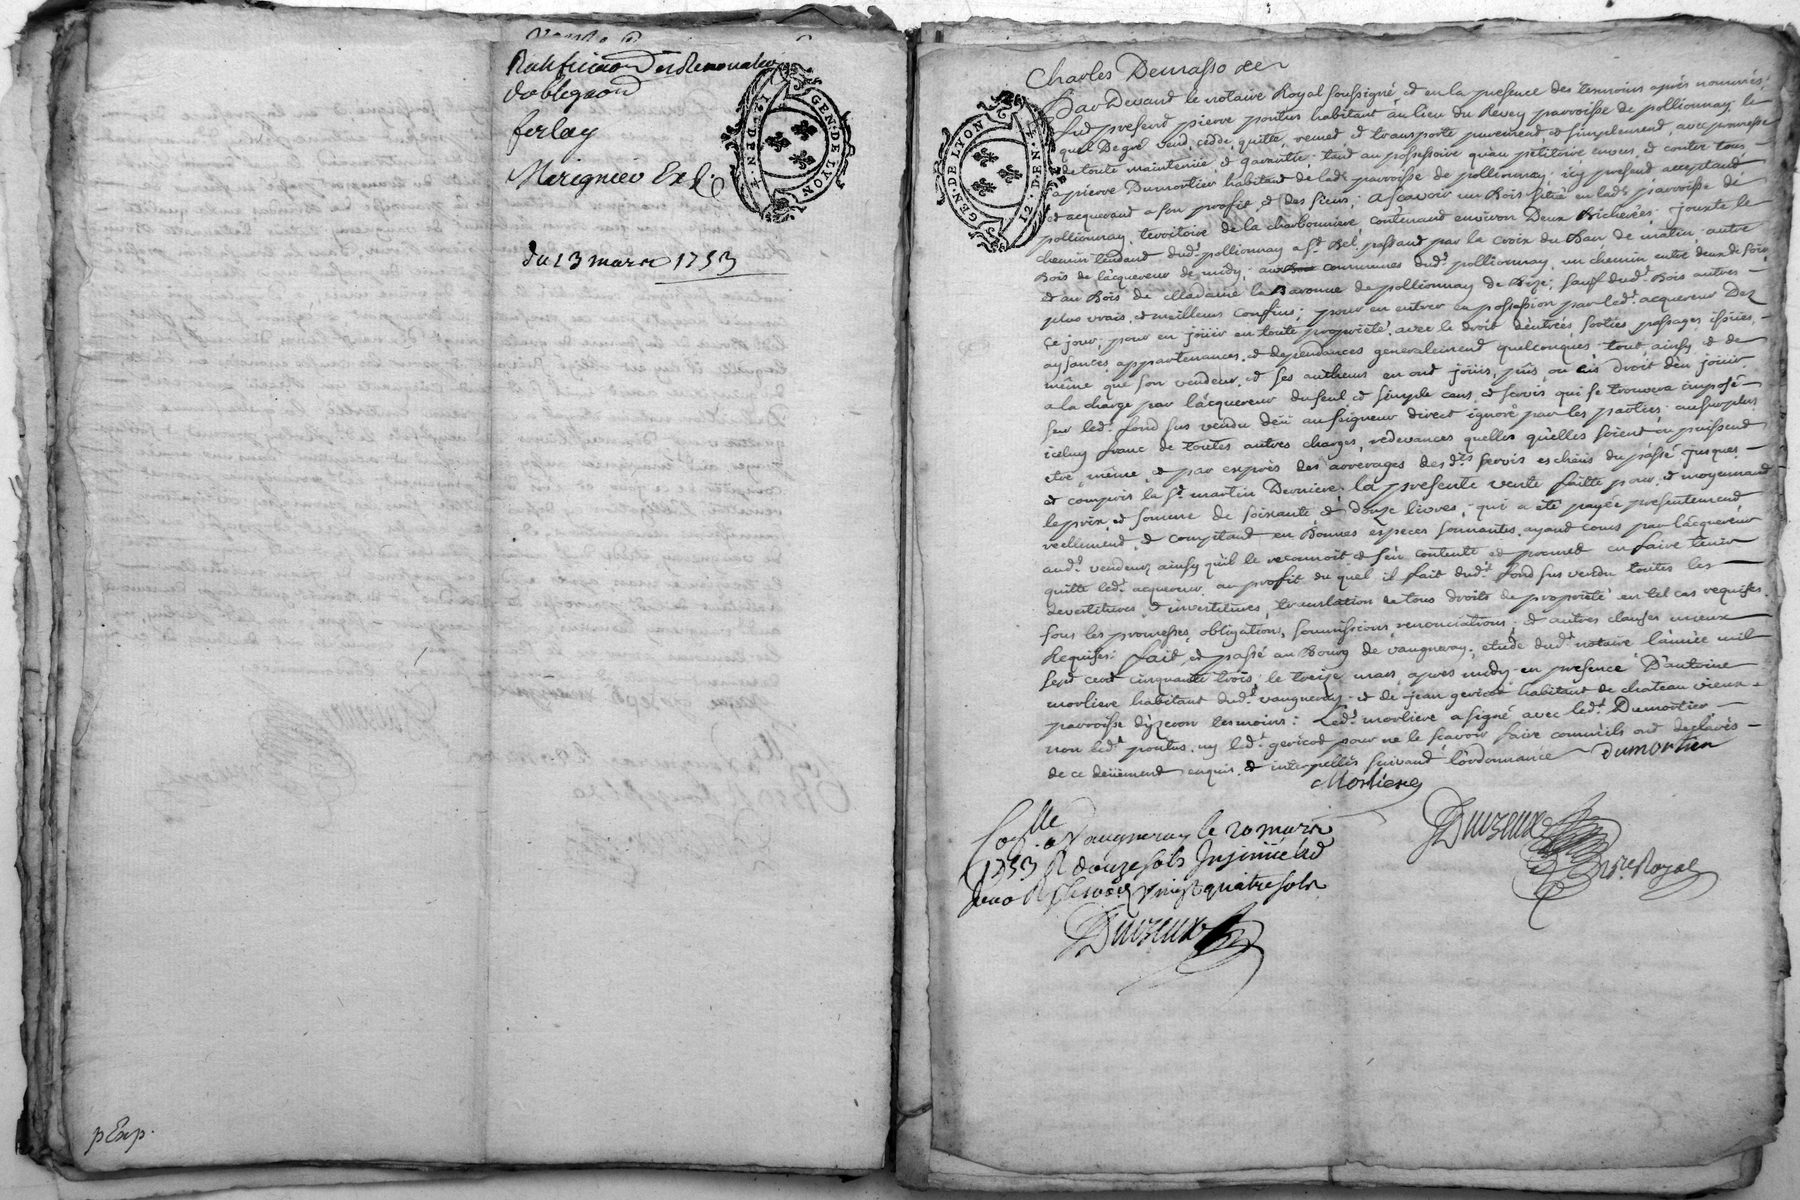 Ratification et Renovation
dobligaon
ferlay
Merignieu Exp.
GEN. DE LYON
12. DEN. 4.
du 13 mars 1753
p Exp.
Charles Demasso de
GEN. DE LYON
12. DEN. 4.
Par Devant le notaire Royal soussigné et en la presence des temoins après nommés,
fut present pierre pontus habitant au lieu du Revey parroisse de pollionnay, le
quel De gré vend, cedde, quitte, remet et transporte purement et simplement, avec promesse
de toute maintenüe et garantie tant au possessoire qu'au petitoire envers et contre tous
a pierre Dumortier habitant de lad.e parroisse de pollionnay, icy present acceptant
et acquerant a son profit et des siens; Ascavoir un Bois situé en lad.e parroisse de
pollionnay, territoire de la charbonniere, contenant environ Deux Bicherées; jouxte le
chemin tendant dud.t pollionnay a s.t Bel, passant par la croix du Ban de matin, autre
Bois de l'acquereur de midy, communes dud.t pollionnay, un chemin entre deux de soir,
et au Bois de Madame la Baronne de pollionnay de Bize; sauf dud.t Bois autres
plus vrais et meilleurs confins; pour en entrer en possession par led.t acquereur Dez
ce jour, pour en jouir en toute proprieté, avec le droit d'entrées, sorties, passages, issües,
aysances, appartenances et dependances generalement quelconques, tout ainsy et de
même que son vendeur et ses autheurs en ont jouïs, pûs, ou eûs Droit d'en jouir
a la charge par l'acquereur du seul et simple cens et servis qui se trouvera imposé
sur led.t fond sus vendu deü au seigneur direct ignoré par les parties, au surplus
iceluy franc de toutes autres charges, redevances quelles qu'elles soient ou puissent
etre, même et par exprès des arrerages desd.ts servis escheus du passé jusques
et compris la s.t martin Derniere; la presente vente faitte pour et moyennant
le prix et somme de soixante et douze livres, qui a été payée presentement
reellement et comptant en Bonnes especes sonnantes ayant cours par l'acquereur
aud.t vendeur ainsy qu'il le reconnoit et s'en contente et promet en faire tenir
quitte led.t acquereur, au profit du quel il fait dud.t fond sus vendu toutes les
devestitures et investitures, translation de tous droits de proprieté en tel cas requises,
sous les promesses, obligation, soumissions, renonciations et autres clauses mieux
Requises; fait et passé au Bourg de vaugneray, etude dud.t notaire l'année mil
sept cent cinquante trois, le treize mars, après midy, en presence D'antoine
morliere habitant dud.t vaugneray et de jean gericot habitant de chateau vieux
parroisse d'yzeron temoins: Led.t morliere a signé avec led.t Dumortier
non led.t pontus, ny led.t gericot pour ne le scavoir faire comme ils ont declarés
de ce deüement enquis et interpellés suivant l'ordonnance Dumortier
Morliere
Con.lle a Vaugneray le 20 mars
1753 R douze sols Insinüé led
jour R vingt quatre sols
Duvzeux
Duvzeux
n.re Royal